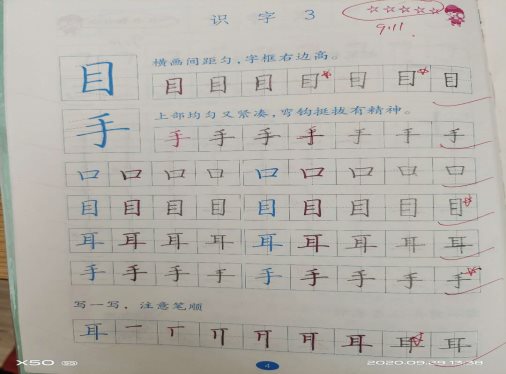 识 字 3
9.11
目 横画间距匀，字框右边高。
目 目 目 目 目 目 目
手 上部均匀又紧凑，弯钩挺拔有精神。
手 手 手 手 手 手 手
口 口 口 口 口 口 口 口 口
目 目 目 目 目 目 目 目 目
耳 耳 耳 耳 耳 耳 耳 耳 耳
手 手 手 手 手 手 手 手 手
写一写，注意笔顺
耳 一 丅 丌 耳 耳 耳
4
X50 5G
2020.09.29 13:38